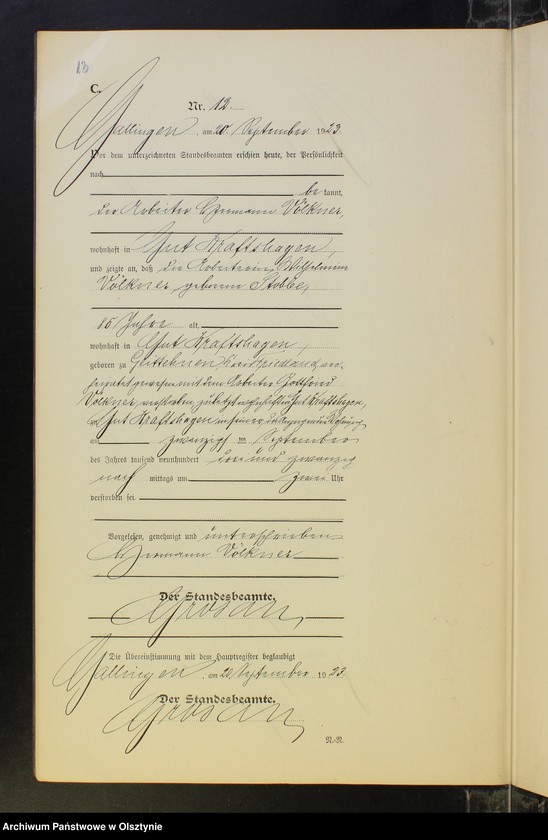 13
C.
Nr. 12.
Gallingen, am 20. September 1923.
Vor dem unterzeichneten Standesbeamten erschien heute, der Persönlichkeit
nach
be kannt,
der Arbeiter Hermann Völkner,
wohnhaft in Gut Kraftshagen,
und zeigte an, daß die Arbeiterin Wilhelmine
Völkner, geborene Stobbe,
85 Jahre alt,
wohnhaft in Gut Kraftshagen,
geboren zu Kreis Friedland, ver-
heiratet gewesen mit dem Arbeiter Gottfried
Völkner, verstorben zuletzt wohnhaft in Gut Kraftshagen,
zu Gut Kraftshagen in seiner Wohnung
am zwanzigsten September
des Jahres tausend neunhundert drei und zwanzig
nach mittags um Uhr
verstorben sei.
Vorgelesen, genehmigt und unterschrieben
Hermann Völkner
Der Standesbeamte.
Grosan
Die Übereinstimmung mit dem Hauptregister beglaubigt
Gallingen, am 20. September 1923.
Der Standesbeamte.
Grosan
N.-N.
Archiwum Państwowe w Olsztynie